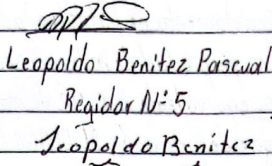 Leopoldo Benitez Pascual
Regidor Nº 5
Leopoldo Benítez